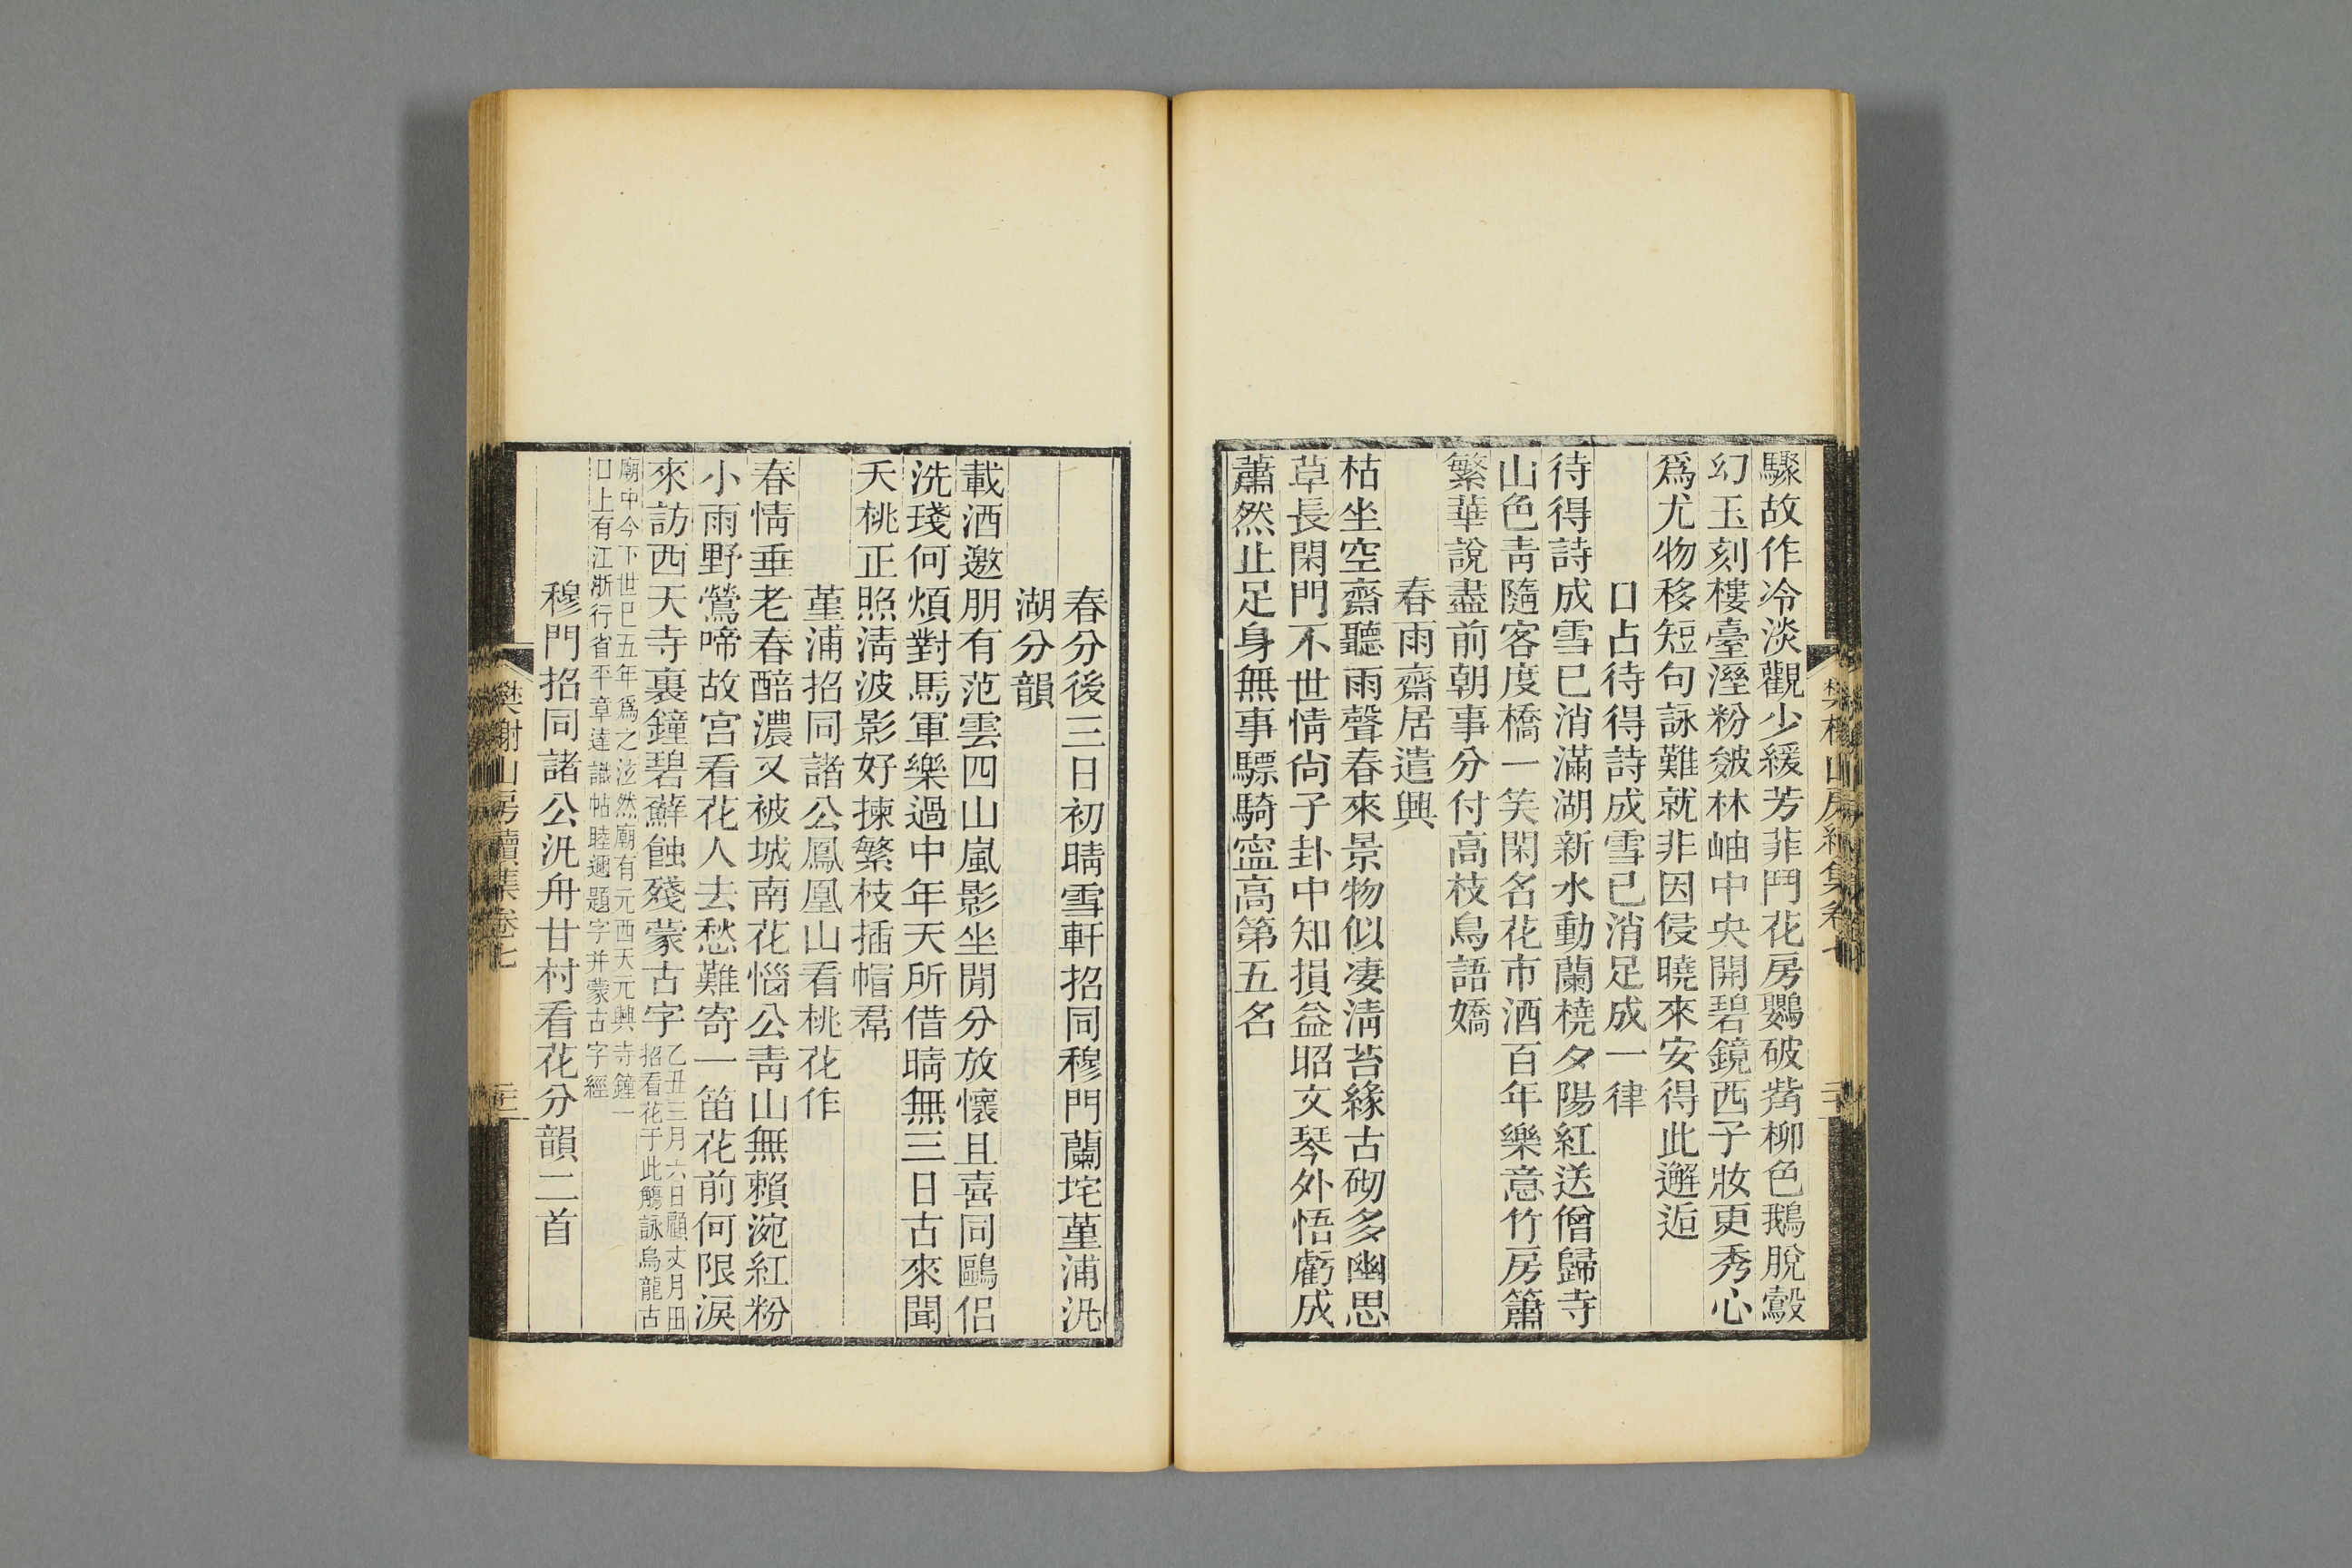 驟故作冷淡觀少緩芳菲鬥花房鸚破觜柳色鵝脫鷇
幻玉刻樓臺溼粉皴林岫中央開碧鏡西子妝更秀心
爲尤物移短句詠難就非因侵曉來安得此邂逅
口占待得詩成雪已消足成一律
待得詩成雪已消滿湖新水動蘭橈夕陽紅送僧歸寺
山色靑隨客度橋一笑閑名花市酒百年樂意竹房簫
繁華說盡前朝事分付高枝鳥語嬌
春雨齋居遣興
枯坐空齋聽雨聲春來景物似凄淸苔緣古砌多幽思
草長閑門不世情尙子卦中知損益昭文琴外悟虧成
蕭然止足身無事驃騎寍高第五名
樊榭山房續集卷七
春分後三日初晴雪軒招同穆門蘭垞堇浦汎
湖分韻
載酒邀朋有范雲四山嵐影坐閒分放懷且喜同鷗侶
洗琖何煩對馬軍樂過中年天所借晴無三日古來聞
夭桃正照淸波影好揀繁枝插帽羣
堇浦招同諸公鳳凰山看桃花作
春情垂老春醅濃又被城南花惱公靑山無賴涴紅粉
小雨野鶯啼故宮看花人去愁難寄一笛花前何限淚
來訪西天寺裏鐘碧蘚蝕殘蒙古字
乙丑三月六日顧丈月田
招看花于此觴詠烏龍古
廟中今下世已五年爲之泫然廟有元西天元興寺鐘一
口上有江浙行省平章達識帖睦邇題字并蒙古字經
穆門招同諸公汎舟甘村看花分韻二首
樊榭山房續集卷七